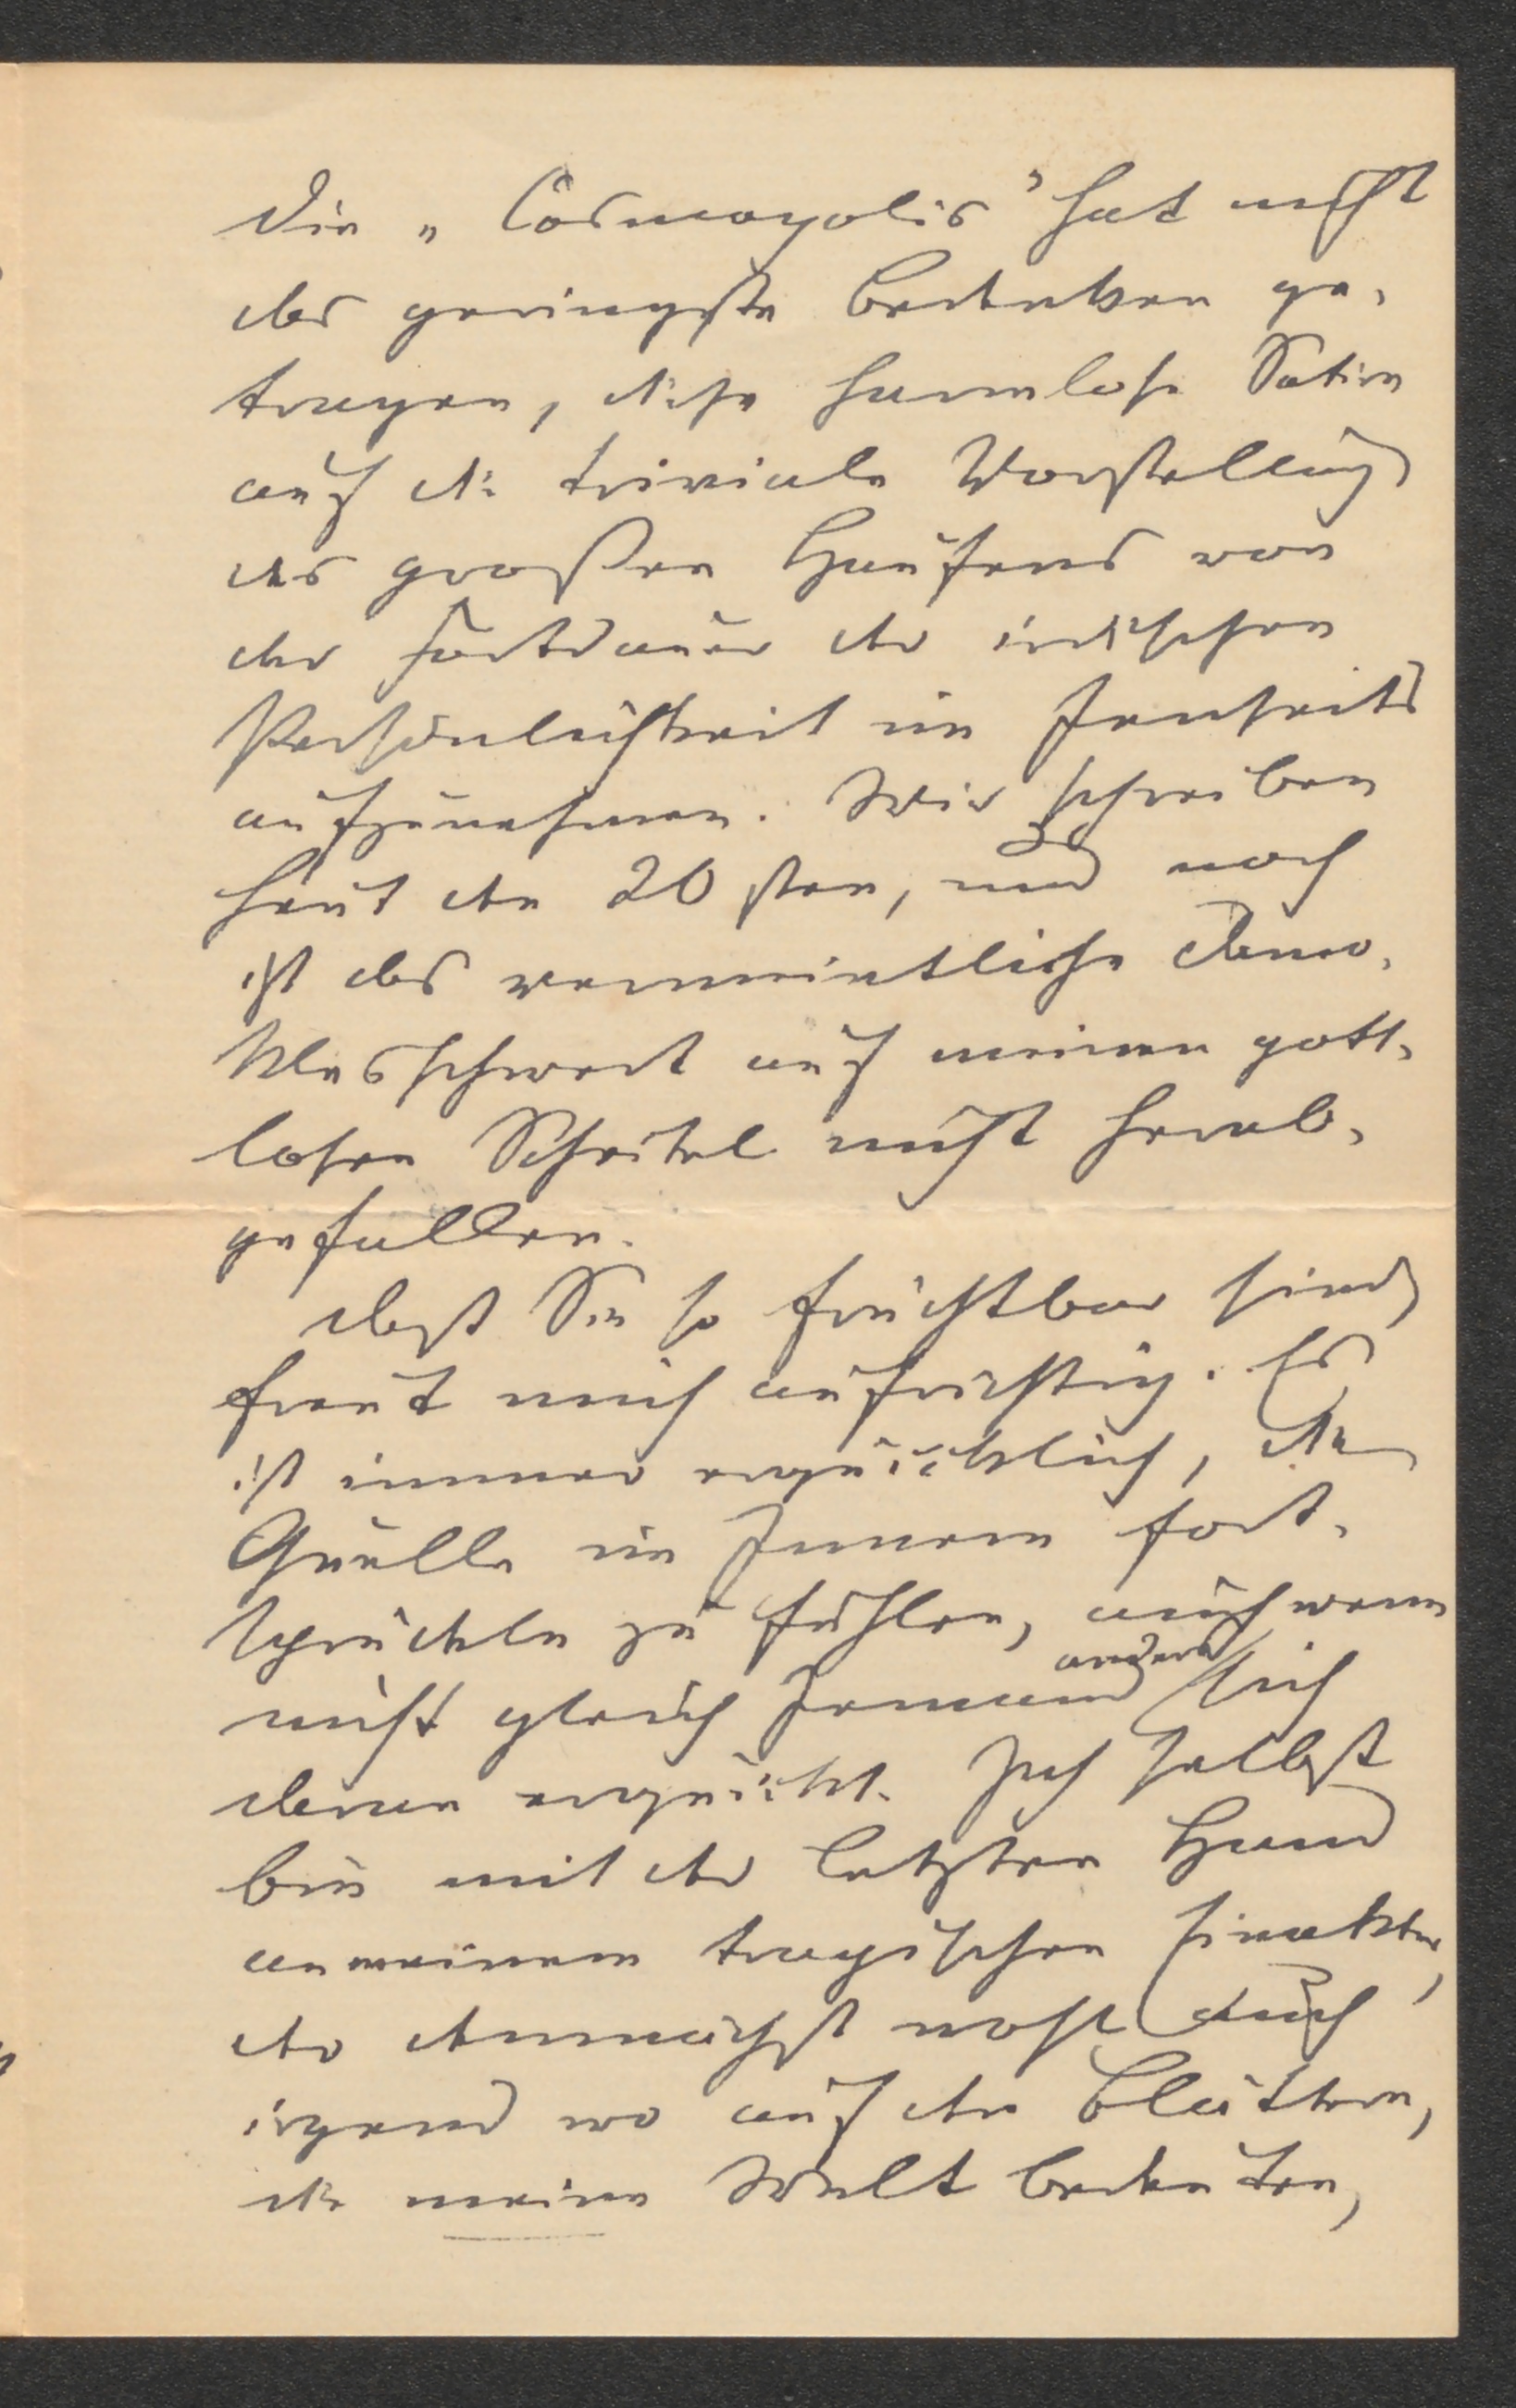 Die „Cosmopolis" hat nicht
das geringste Bedenken ge-
tragen, diese harmlose Satire
auf die triviale Vorstellung
des großen Haufens von
der Fortdauer der irdischen
Persönlichkeit im Jenseits
aufzunehmen. Wir schreiben
heut den 20sten, und noch
ist das vermeintliche Damo-
klesschwert auf meinen gott-
losen Scheitel nicht herab-
gefallen.
Daß Sie so fruchtbar sind,
freut mich aufrichtig. Es
ist immer erquicklich, die
Quelle im Innern fort-
sprudeln zu fühlen, auch wenn
nicht gleich Jemand andres sich
daran erquickt. Ich selbst
bin mit der letzten Hand
an meinem tragischen Einakter,
der demnächst wohl auch
irgend wo auf den Blättern,
die meine Welt bedeuten,